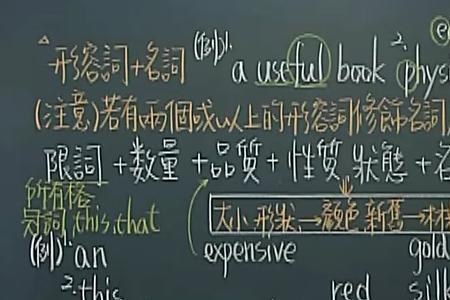 △形容詞+名詞 (例)1. a useful book 2. phys
(注意)若有兩個或以上的形容詞修飾名詞,
限詞+數量+品質+性質狀態+名
所有格
冠詞,this,that
大小形狀→顏色新舊→材
(例)1. an expensive gold
2.this red silk